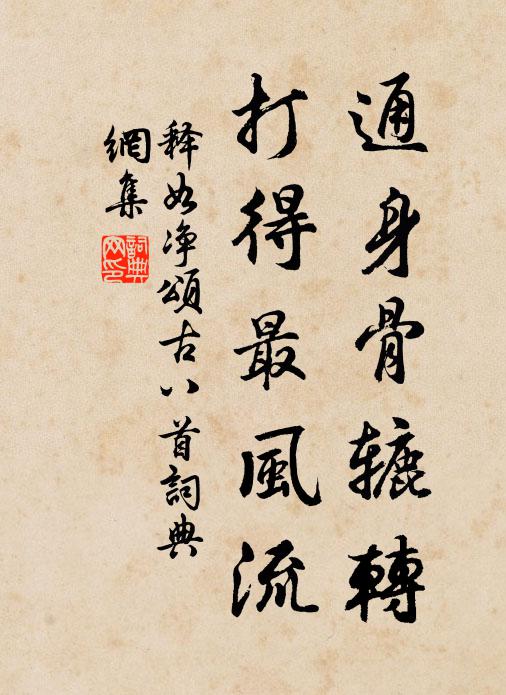 通身骨辘轉
打得最風流
释如净頌古八首詞典
網集
詞典网印